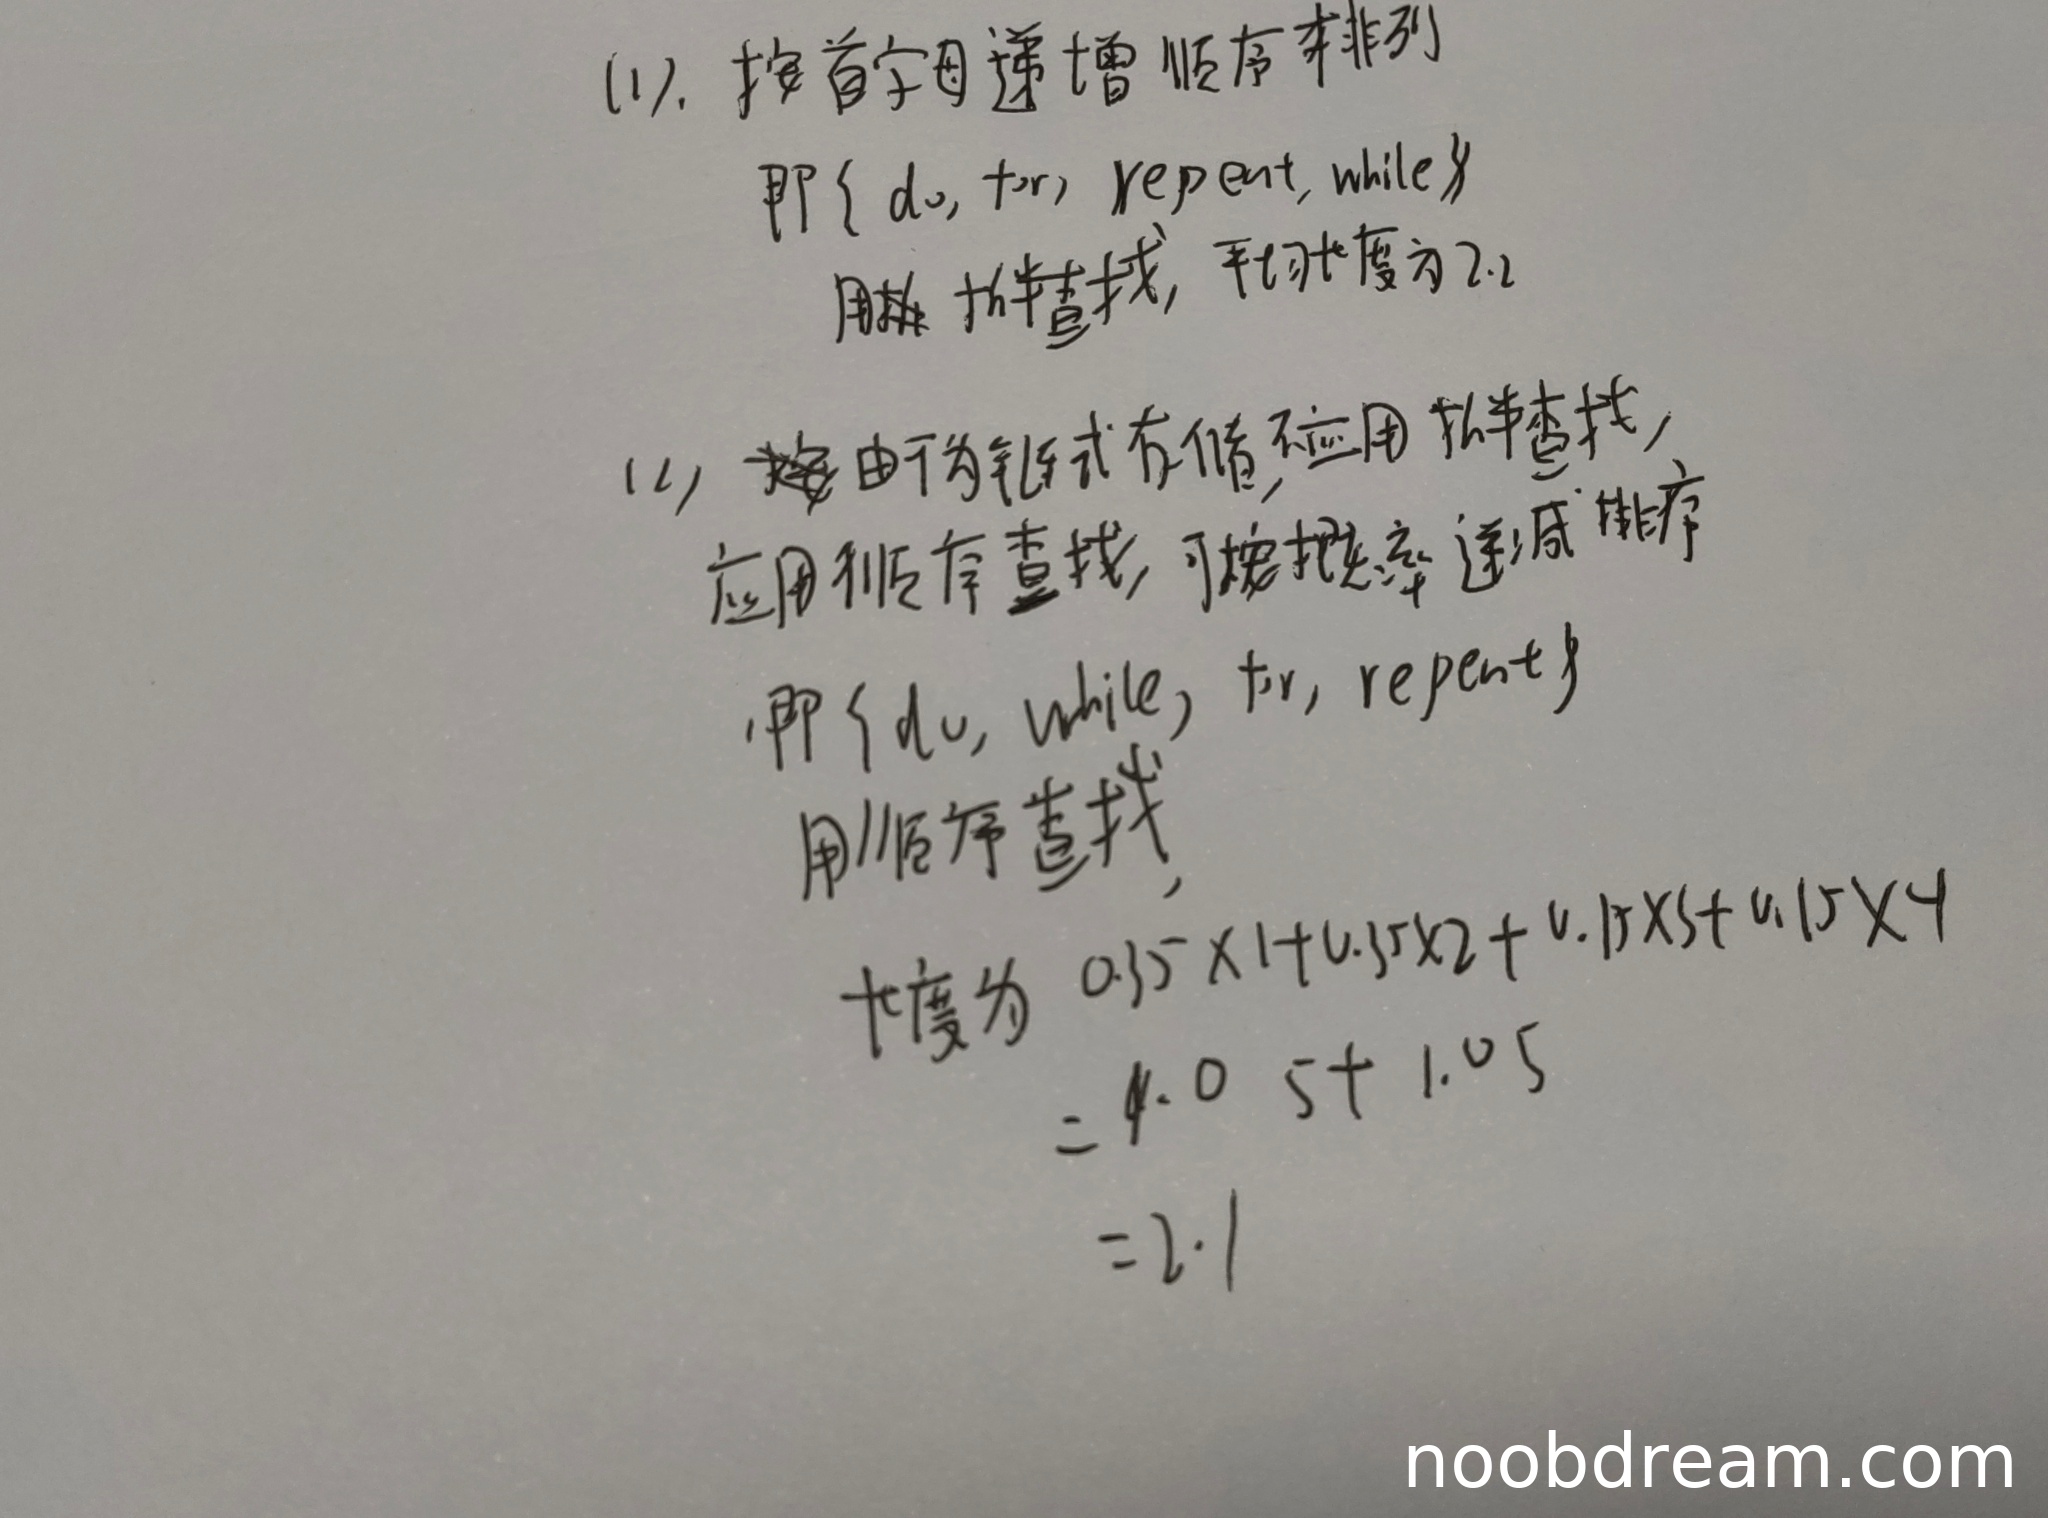 (1). 按首字母递增顺序来排列
即{do, for, repeat, while}
用折半查找, 平均长度为2.2
(2) 由于为链式存储, 不应用折半查找,
应用顺序查找, 可按概率递减排序
即{do, while, for, repeat}
用顺序查找,
长度为 0.35×1+0.35×2+0.15×3+0.15×4
=1.05+1.05
=2.1
noobdream.com